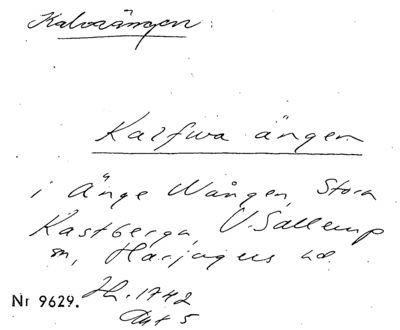 Kalvaängen:
Kalfwa ängen
i Änge Wången, Stora
Kastberga, V. Sallerup
sn, Harjagers hd
Jb. 1742
Akt 5
Nr 9629.